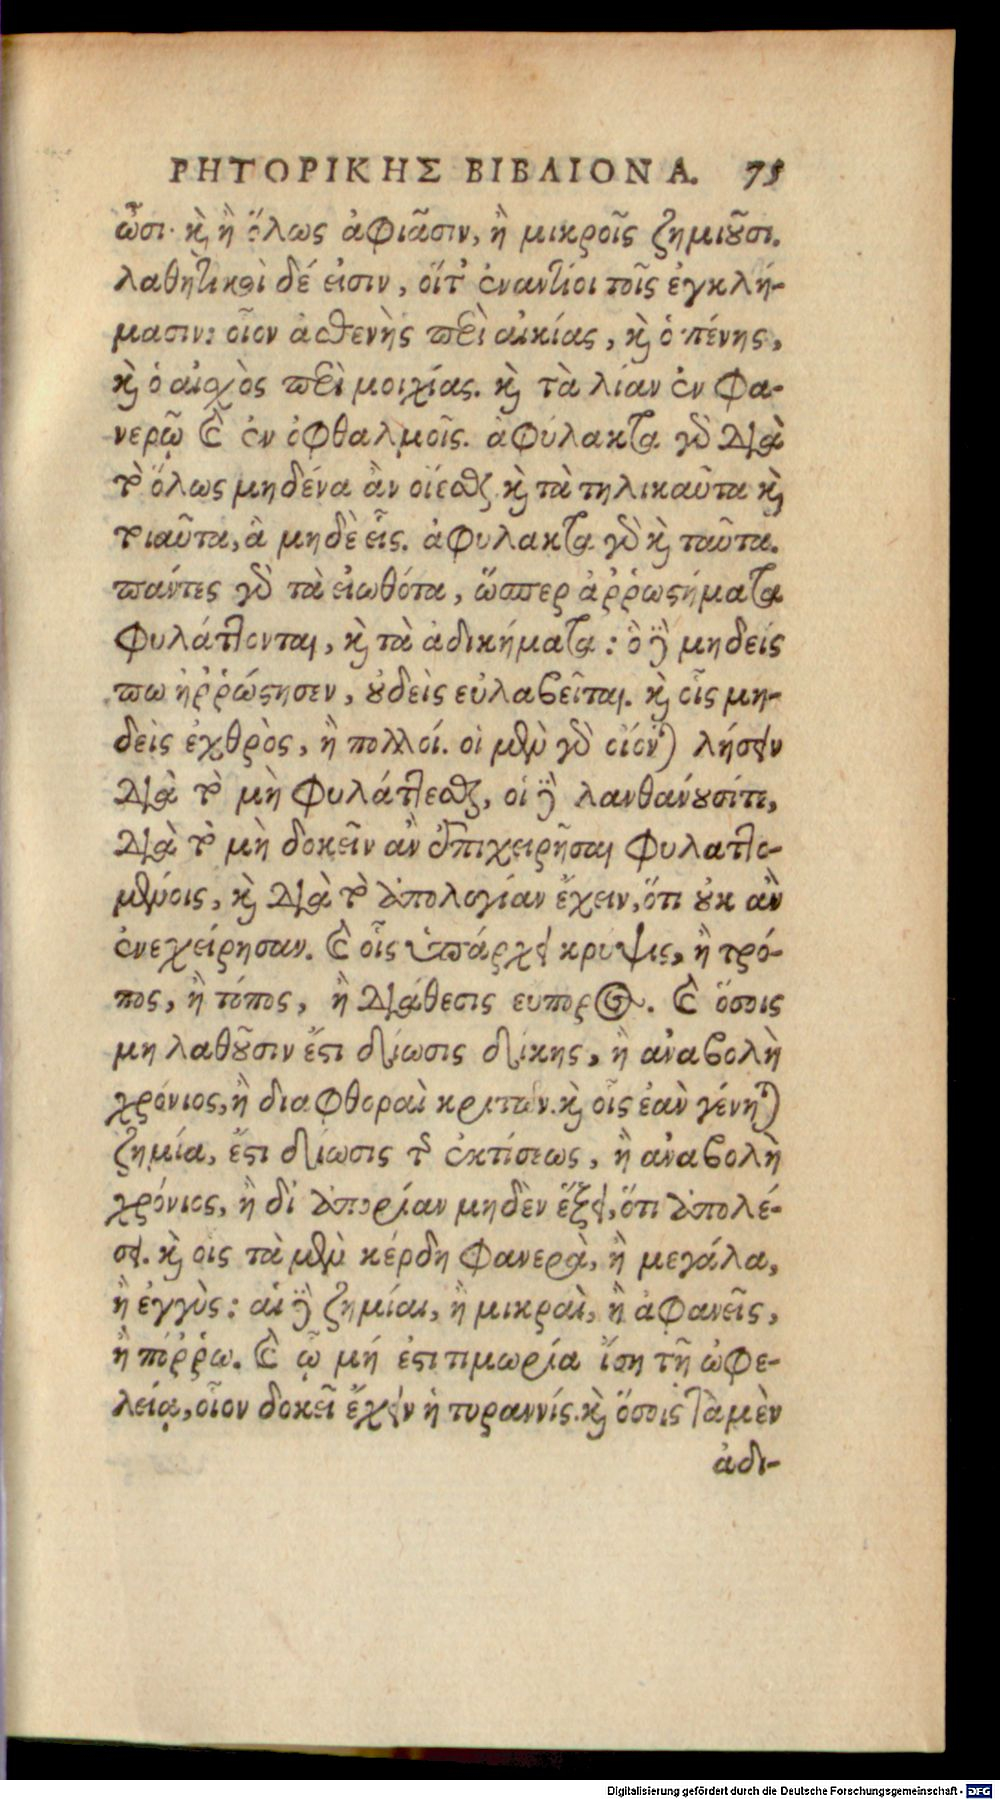 ΡΗΤΟΡΙΚΗΣ ΒΙΒΛΙΟΝ Α. 75
ὦσι· καὶ ἢ ὅλως ἀφιᾶσιν, ἢ μικροῖς ζημιοῦσι.
λαθητικοὶ δέ εἰσιν, οἵτ' ἐναντίοι τοῖς ἐγκλή-
μασιν: οἷον ἀσθενὴς περὶ αἰκίας, καὶ ὁ πένης,
καὶ ὁ αἰσχὸς περὶ μοιχίας. καὶ τὰ λίαν ἐν φα-
νερῷ καὶ ἐν ὀφθαλμοῖς. ἀφύλακτα γὰρ διὰ
τὸ ὅλως μηδένα ἂν οἴεσθαι. καὶ τὰ τηλικαῦτα καὶ
τοιαῦτα, ἃ μηδὲ εἷς. ἀφυλακτα γὰρ καὶ ταῦτα.
πάντες γὰρ τὰ εἰωθότα, ὥσπερ ἀῤῥωστήματα
φυλάττονται, καὶ τὰ ἀδικήματα: ὃ δὲ μηδείς
πω ἠῤῥώστησεν, οὐδεὶς εὐλαβεῖται. καὶ οἷς μη-
δεὶς ἐχθρὸς, ἢ πολλοί. οἱ μὲν γὰρ οἴονται λήσειν
διὰ τὸ μὴ φυλάττεσθαι, οἱ δὲ λανθάνουσί τε,
διὰ τὸ μὴ δοκεῖν ἂν ἐπιχειρῆσαι φυλαττο-
μένοις, καὶ διὰ τὸ ἀπολογίαν ἔχειν, ὅτι οὐκ ἂν
ἐνεχείρησαν. καὶ οἷς ὑπάρχει κρύψις, ἢ τρό-
πος, ἢ τόπος, ἢ διάθεσις ευπορος. καὶ ὅσοις
μη λαθοῦσιν ἔστι δίωσις δίκης, ἢ ἀναβολὴ
χρόνιος, ἢ διαφθοραὶ κριτῶν. καὶ οἷς ἐὰν γένηται
ζημία, ἔστι δίωσις τῆς ἐκτίσεως, ἢ ἀναβολὴ
χρόνιος, ἢ δι' ἀπορίαν μηδὲν ἕξει, ὅτι ἀπολέ-
σει. καὶ οις τὰ μὲν κέρδη φανερὰ, ἢ μεγάλα,
ἢ ἐγγὺς: αἱ δὲ ζημίαι, ἢ μικραὶ, ἢ ἀφανεῖς,
ἢ πόῤῥω. καὶ ᾧ μή ἐστι τιμωρία ἴση τῇ ὠφε-
λείᾳ, οἷον δοκεῖ ἔχειν ἡ τυραννίς. καὶ ὅσοις τὰ μὲν
ἀδι-
Digitalisierung gefördert durch die Deutsche Forschungsgemeinschaft - DFG